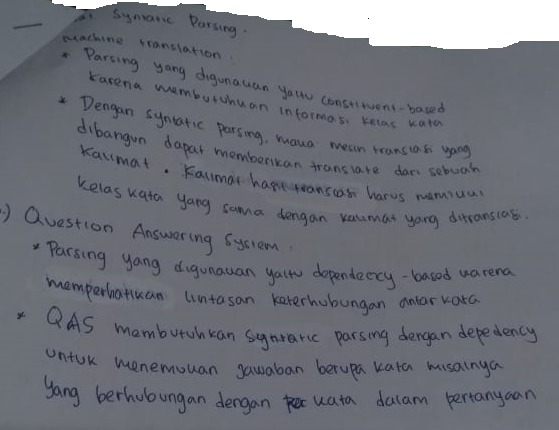 Syntatic Parsing.
machine translation.
* Parsing yang digunakan yaitu constituent-based
karena membutuhkan informasi kelas kata
* Dengan syntatic parsing, maka mesin translasi yang
dibangun dapat memberikan translate dari sebuah
kalimat. Kalimat hasil translasi harus memiliki
kelas kata yang sama dengan kalimat yang ditranslasi.
.) Question Answering System.
* Parsing yang digunakan yaitu dependeccy-based karena
memperhatikan lintasan keterhubungan antar kata
* QAS membutuhkan syntatic parsing dengan depedency
untuk menemukan jawaban berupa kata misalnya
yang berhubungan dengan kata dalam pertanyaan